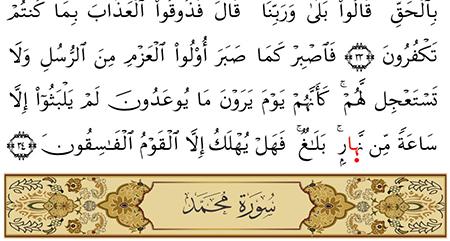 بِٱلْحَقِّ قَالُوا۟ بَلَىٰ وَرَبِّنَا قَالَ فَذُوقُوا۟ ٱلْعَذَابَ بِمَا كُنتُمْ
تَكْفُرُونَ ٣٣ فَٱصْبِرْ كَمَا صَبَرَ أُو۟لُوا۟ ٱلْعَزْمِ مِنَ ٱلرُّسُلِ وَلَا
تَسْتَعْجِل لَّهُمْۚ كَأَنَّهُمْ يَوْمَ يَرَوْنَ مَا يُوعَدُونَ لَمْ يَلْبَثُوٓا۟ إِلَّا
سَاعَةً مِّن نَّهِارٍۚ بَلَٰغٌۚ فَهَلْ يُهْلَكُ إِلَّا ٱلْقَوْمُ ٱلْفَٰسِقُونَ ٣٤
سُورَةُ مُحَمَّد